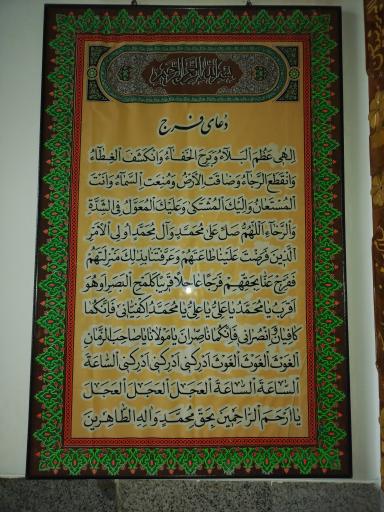 بسم الله الرحمن الرحيم
دعای فرج
اِلٰهی عَظُمَ الْبَلَاءُ وَبَرِحَ الْخَفَآءُ وَانْكَشَفَ الْغِطَآءُ
وَانْقَطَعَ الرَّجَآءُ وَضَاقَتِ الْاَرْضُ وَمُنِعَتِ السَّمَآءُ وَاَنْتَ
الْمُسْتَعَانُ وَاِلَيْكَ الْمُشْتَكىٰ وَعَلَيْكَ الْمُعَوَّلُ فِى الشِّدَّةِ
وَالرَّخَآءِ اَللّٰهُمَّ صَلِّ عَلىٰ مُحَمَّدٍ وَآلِ مُحَمَّدٍ اُولِى الْاَمْرِ
الَّذينَ فَرَضْتَ عَلَيْنَا طَاعَتَهُمْ وَعَرَّفْتَنَا بِذٰلِكَ مَنْزِلَتَهُمْ
فَفَرِّجْ عَنَّا بِحَقِّهِمْ فَرَجًا عَاجِلًا قَريبًا كَلَمْحِ الْبَصَرِ اَوْ هُوَ
اَقْرَبُ يَا مُحَمَّدُ يَا عَلِىُّ يَا عَلِىُّ يَا مُحَمَّدُ اِكْفِيَانى فَاِنَّكُمَا
كَافِيَانِ وَانْصُرَانى فَاِنَّكُمَا نَاصِرَانِ يَا مَوْلَانَا يَا صَاحِبَ الزَّمَانِ
الْغَوْثَ الْغَوْثَ الْغَوْثَ اَدْرِكْنى اَدْرِكْنى اَدْرِكْنى السَّاعَةَ
السَّاعَةَ السَّاعَةَ الْعَجَلَ الْعَجَلَ الْعَجَلَ
يَا اَرْحَمَ الرَّاحِمينَ بِحَقِّ مُحَمَّدٍ وَآلِهِ الطَّاهِرينَ